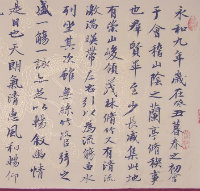 永和九年歲在癸丑暮春之初會
于會稽山陰之蘭亭脩禊事
也群賢畢至少長咸集此地
有崇山峻領茂林脩竹又有清流
激湍暎帶左右引以為流觴曲水
列坐其次雖無絲竹管弦之
盛一觴一詠亦足以暢敘幽情
是日也天朗氣清惠風和暢仰